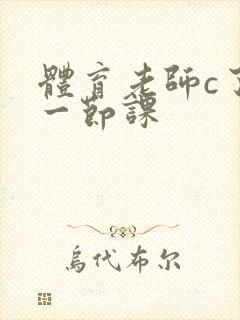 體育老師c了
一節課
烏代布尔